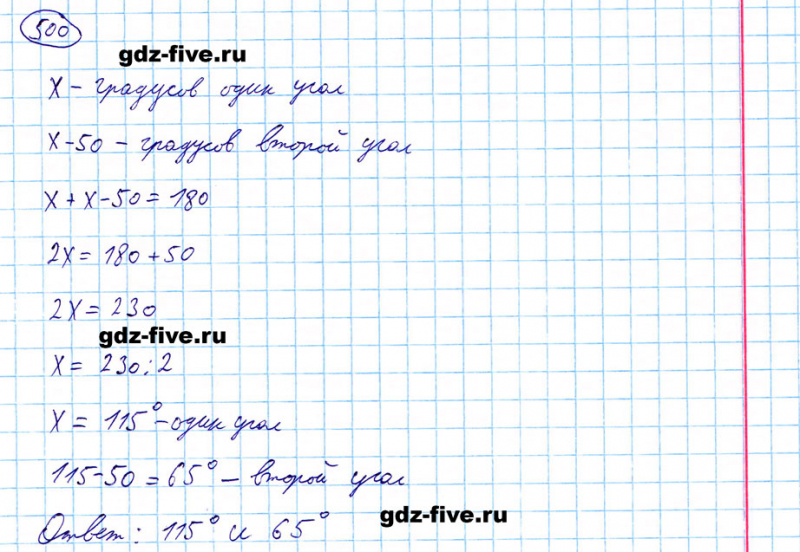 500
gdz-five.ru
x - градусов один угол
x-50 - градусов второй угол
x + x-50 = 180
2x = 180 + 50
2x = 230
gdz-five.ru
x = 230:2
x = 115° - один угол
115-50 = 65° - второй угол
gdz-five.ru
Ответ: 115° и 65°